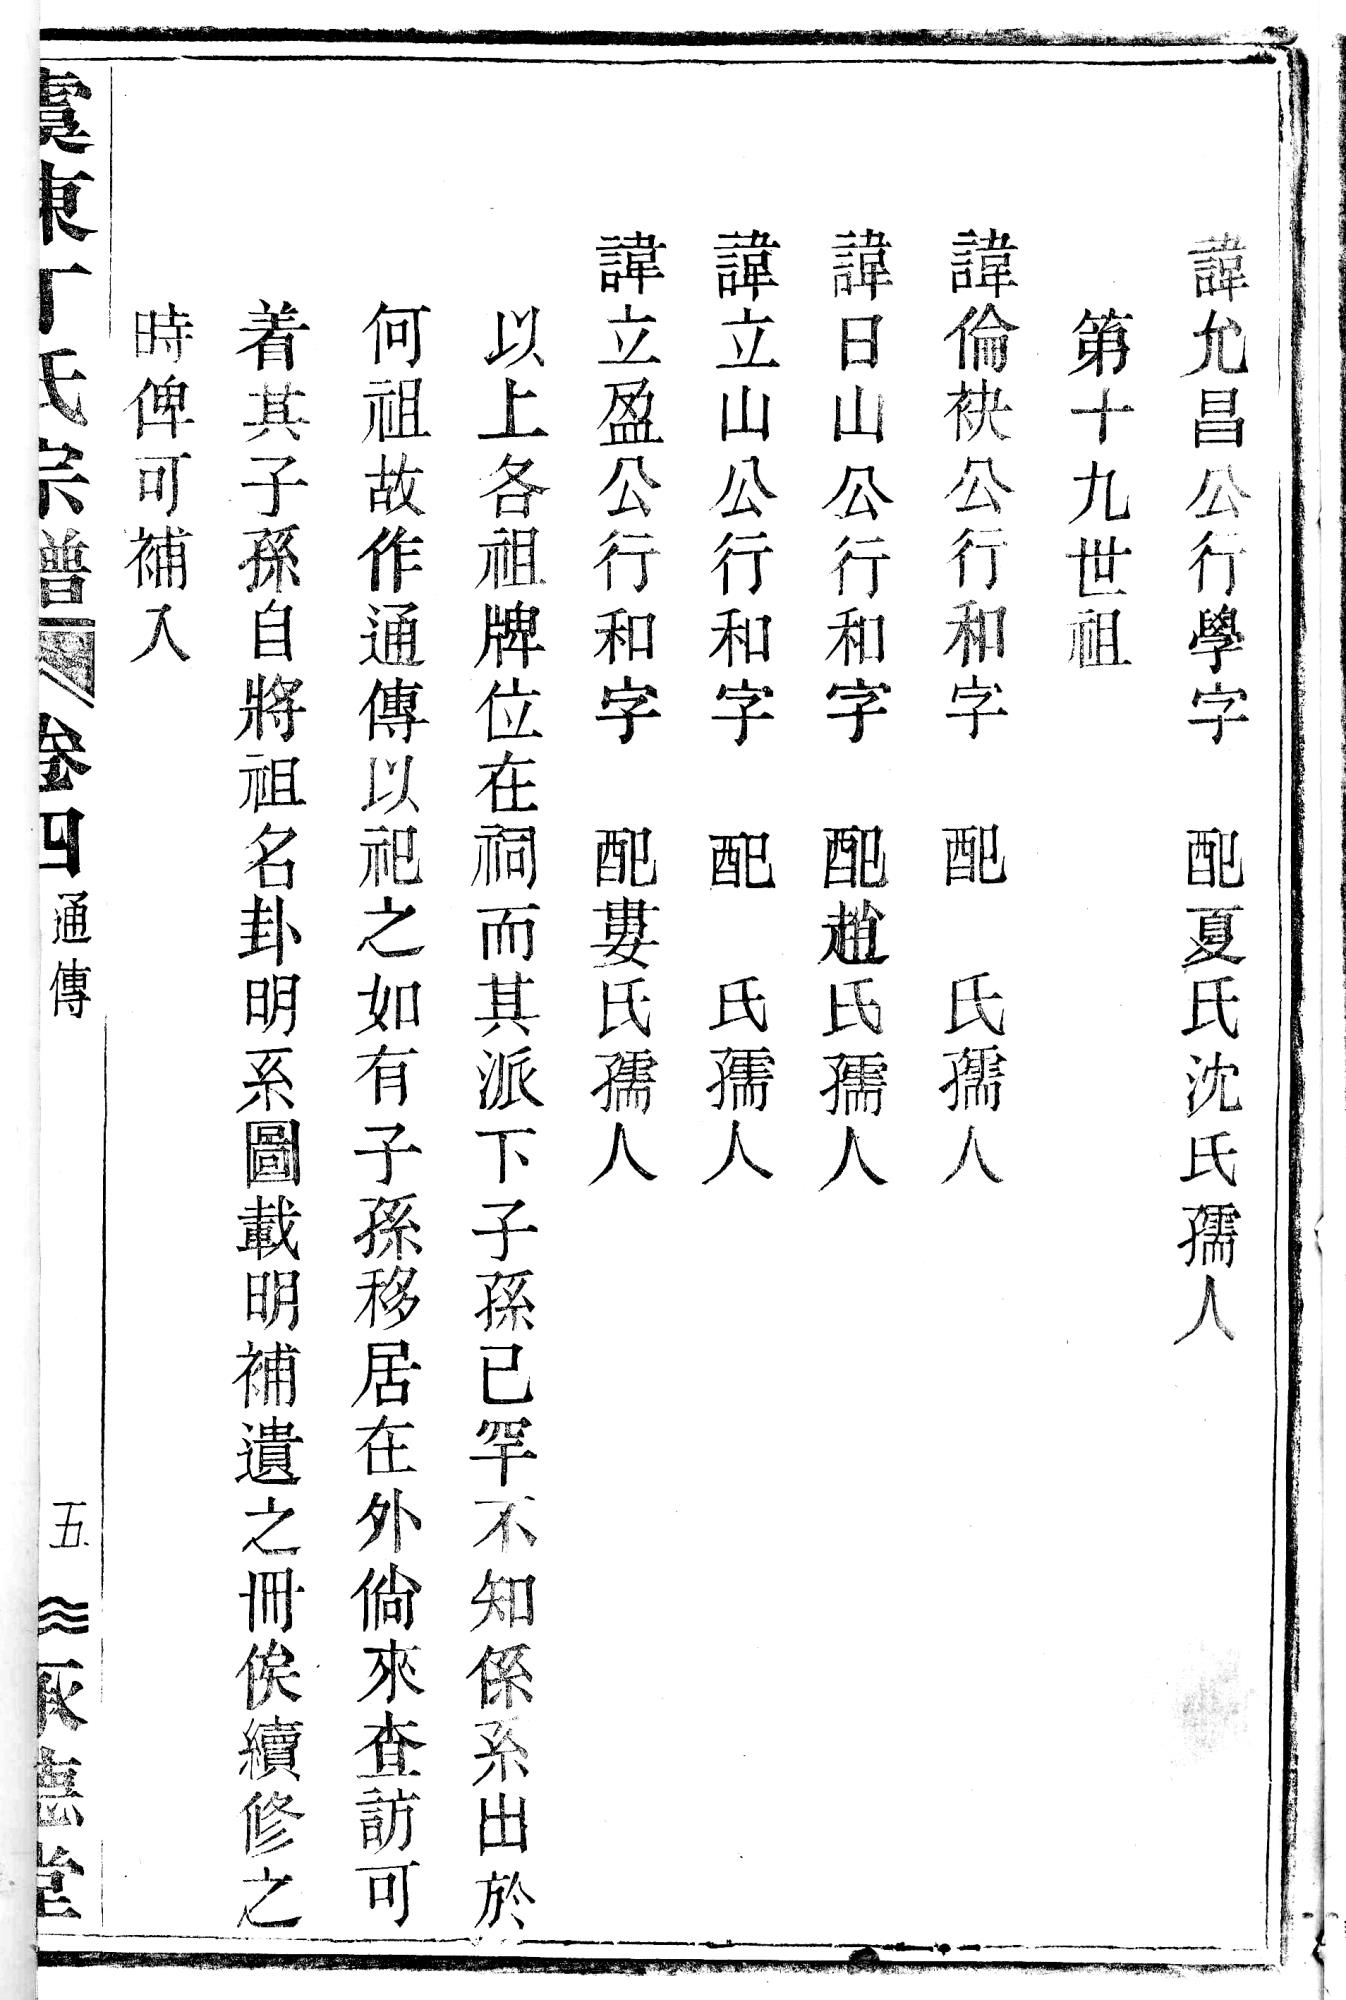 諱允昌公行學字　配夏氏沈氏孺人
第十九世祖
諱倫袂公行和字　配　氏孺人
諱日山公行和字　配趙氏孺人
諱立山公行和字　配　氏孺人
諱立盈公行和字　配婁氏孺人
以上各祖牌位在祠而其派下子孫已罕不知係系出於
何祖故作通傳以祀之如有子孫移居在外倘來查訪可
着其子孫自將祖名卦明系圖載明補遺之冊俟續修之
時俾可補入
虞東丁氏宗譜　卷四　通傳　五　承德堂